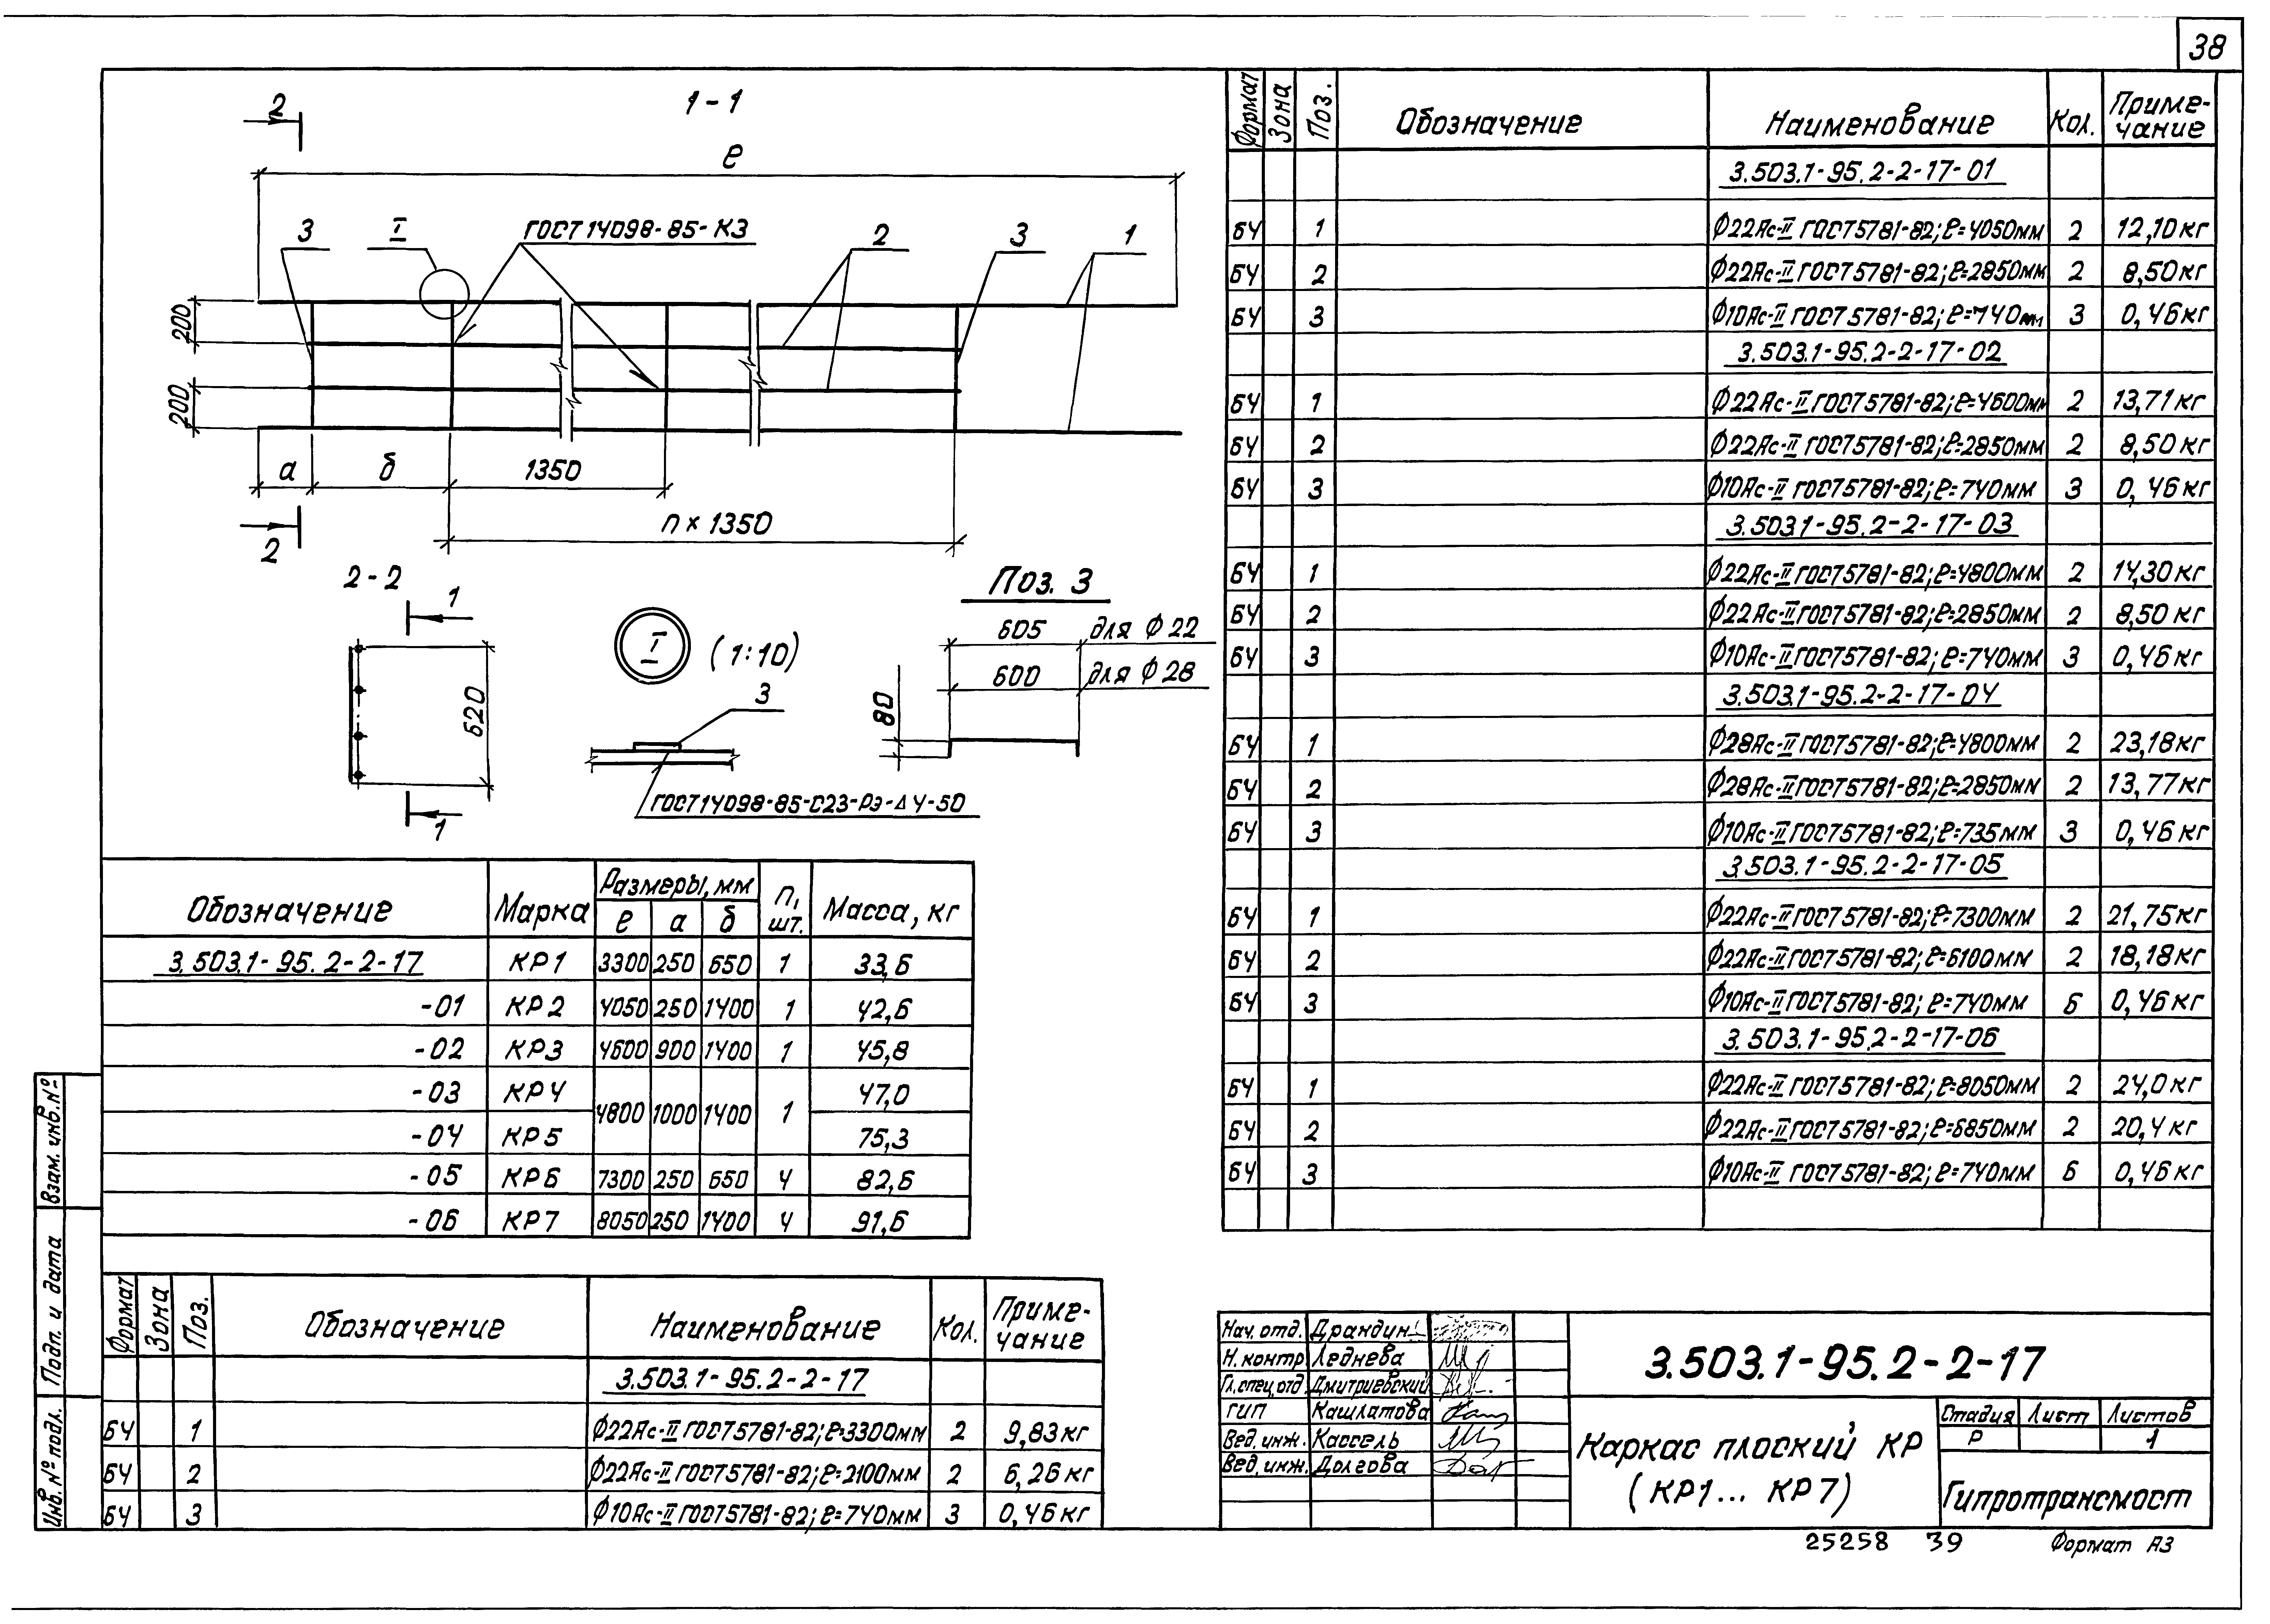 38
1-1
2
е
3
I
ГОСТ 14098-85-К3
2
3
1
200
200
а
б
1350
n × 1350
2
2-2
1
620
1
I
(1:10)
3
ГОСТ 14098-85-С23-Рэ-Δ4-50
Поз. 3
605 для Ф 22
600 для Ф 28
80
Обозначение Марка Размеры, мм n, шт. Масса, кг
е а б
3.503.1-95.2-2-17 КР1 3300 250 650 1 33,6
-01 КР2 4050 250 1400 1 42,6
-02 КР3 4600 900 1400 1 45,8
-03 КР4 4800 1000 1400 1 47,0
-04 КР5 75,3
-05 КР6 7300 250 650 4 82,6
-06 КР7 8050 250 1400 4 91,6
Формат Зона Поз. Обозначение Наименование Кол. Приме-
чание
3.503.1-95.2-2-17
БЧ 1 Ф22Ас-II ГОСТ 5781-82; е=3300мм 2 9,83кг
БЧ 2 Ф22Ас-II ГОСТ 5781-82; е=2100мм 2 6,26кг
БЧ 3 Ф10Ас-II ГОСТ 5781-82; е=740мм 3 0,46кг
Формат Зона Поз. Обозначение Наименование Кол. Приме-
чание
3.503.1-95.2-2-17-01
БЧ 1 Ф22Ас-II ГОСТ 5781-82; е=4050мм 2 12,10кг
БЧ 2 Ф22Ас-II ГОСТ 5781-82; е=2850мм 2 8,50кг
БЧ 3 Ф10Ас-II ГОСТ 5781-82; е=740мм 3 0,46кг
3.503.1-95.2-2-17-02
БЧ 1 Ф22Ас-II ГОСТ 5781-82; е=4600мм 2 13,71кг
БЧ 2 Ф22Ас-II ГОСТ 5781-82; е=2850мм 2 8,50кг
БЧ 3 Ф10Ас-II ГОСТ 5781-82; е=740мм 3 0,46кг
3.503.1-95.2-2-17-03
БЧ 1 Ф22Ас-II ГОСТ 5781-82; е=4800мм 2 14,30кг
БЧ 2 Ф22Ас-II ГОСТ 5781-82; е=2850мм 2 8,50кг
БЧ 3 Ф10Ас-II ГОСТ 5781-82; е=740мм 3 0,46кг
3.503.1-95.2-2-17-04
БЧ 1 Ф28Ас-II ГОСТ 5781-82; е=4800мм 2 23,18кг
БЧ 2 Ф28Ас-II ГОСТ 5781-82; е=2850мм 2 13,77кг
БЧ 3 Ф10Ас-II ГОСТ 5781-82; е=735мм 3 0,46кг
3.503.1-95.2-2-17-05
БЧ 1 Ф22Ас-II ГОСТ 5781-82; е=7300мм 2 21,75кг
БЧ 2 Ф22Ас-II ГОСТ 5781-82; е=6100мм 2 18,18кг
БЧ 3 Ф10Ас-II ГОСТ 5781-82; е=740мм 6 0,46кг
3.503.1-95.2-2-17-06
БЧ 1 Ф22Ас-II ГОСТ 5781-82; е=8050мм 2 24,0кг
БЧ 2 Ф22Ас-II ГОСТ 5781-82; е=6850мм 2 20,4кг
БЧ 3 Ф10Ас-II ГОСТ 5781-82; е=740мм 6 0,46кг
Нач. отд. Драндин
Н. контр. Леднева
Гл. спец. отд. Дмитриевский
ГИП Кашлатова
Вед. инж. Кассель
Вед. инж. Долгова
3.503.1-95.2-2-17
Каркас плоский КР
(КР1... КР7)
Стадия Лист Листов
Р 1
Гипротрансмост
25258 39 Формат А3
Взам. инв. №
Подп. и дата
Инв. № подл.